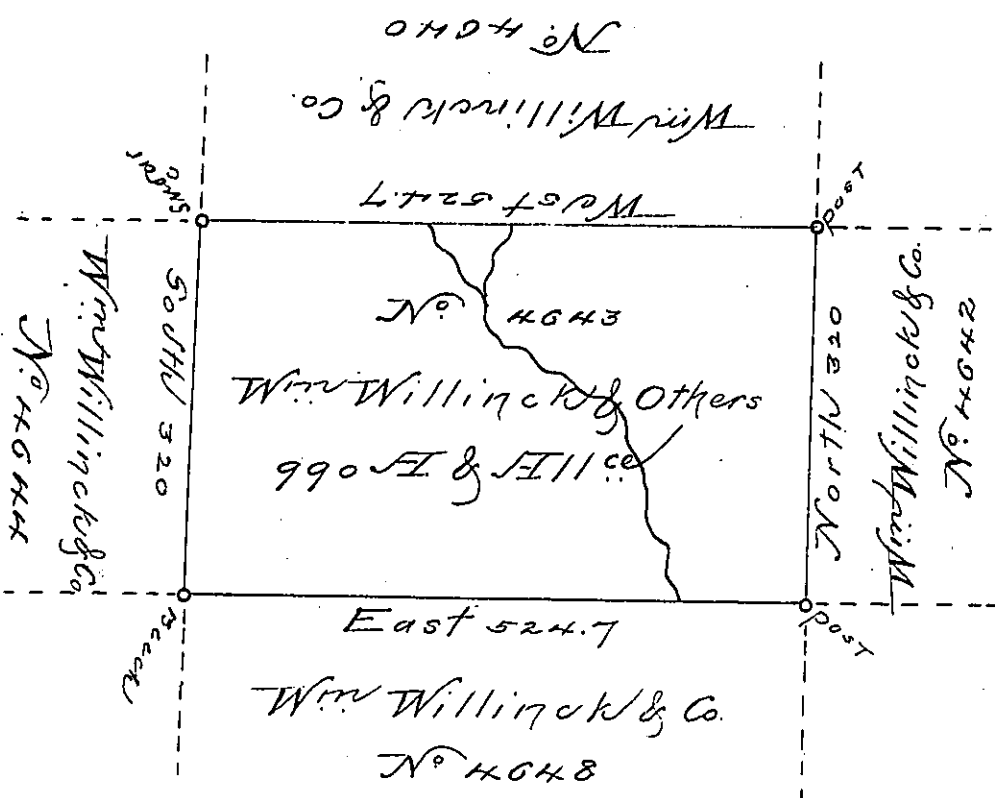 No. 4640
Wm Willinck & Co.
West 524.7
Sugar
Post
South 320
Wm Willinck & Co.
No. 4644
No. 4643
Wm Willinck & Others
990 A & Allce
North 320
Wm Willinck & Co.
No. 4642
Beech
Post
East 524.7
Wm Willinck & Co.
No. 4648